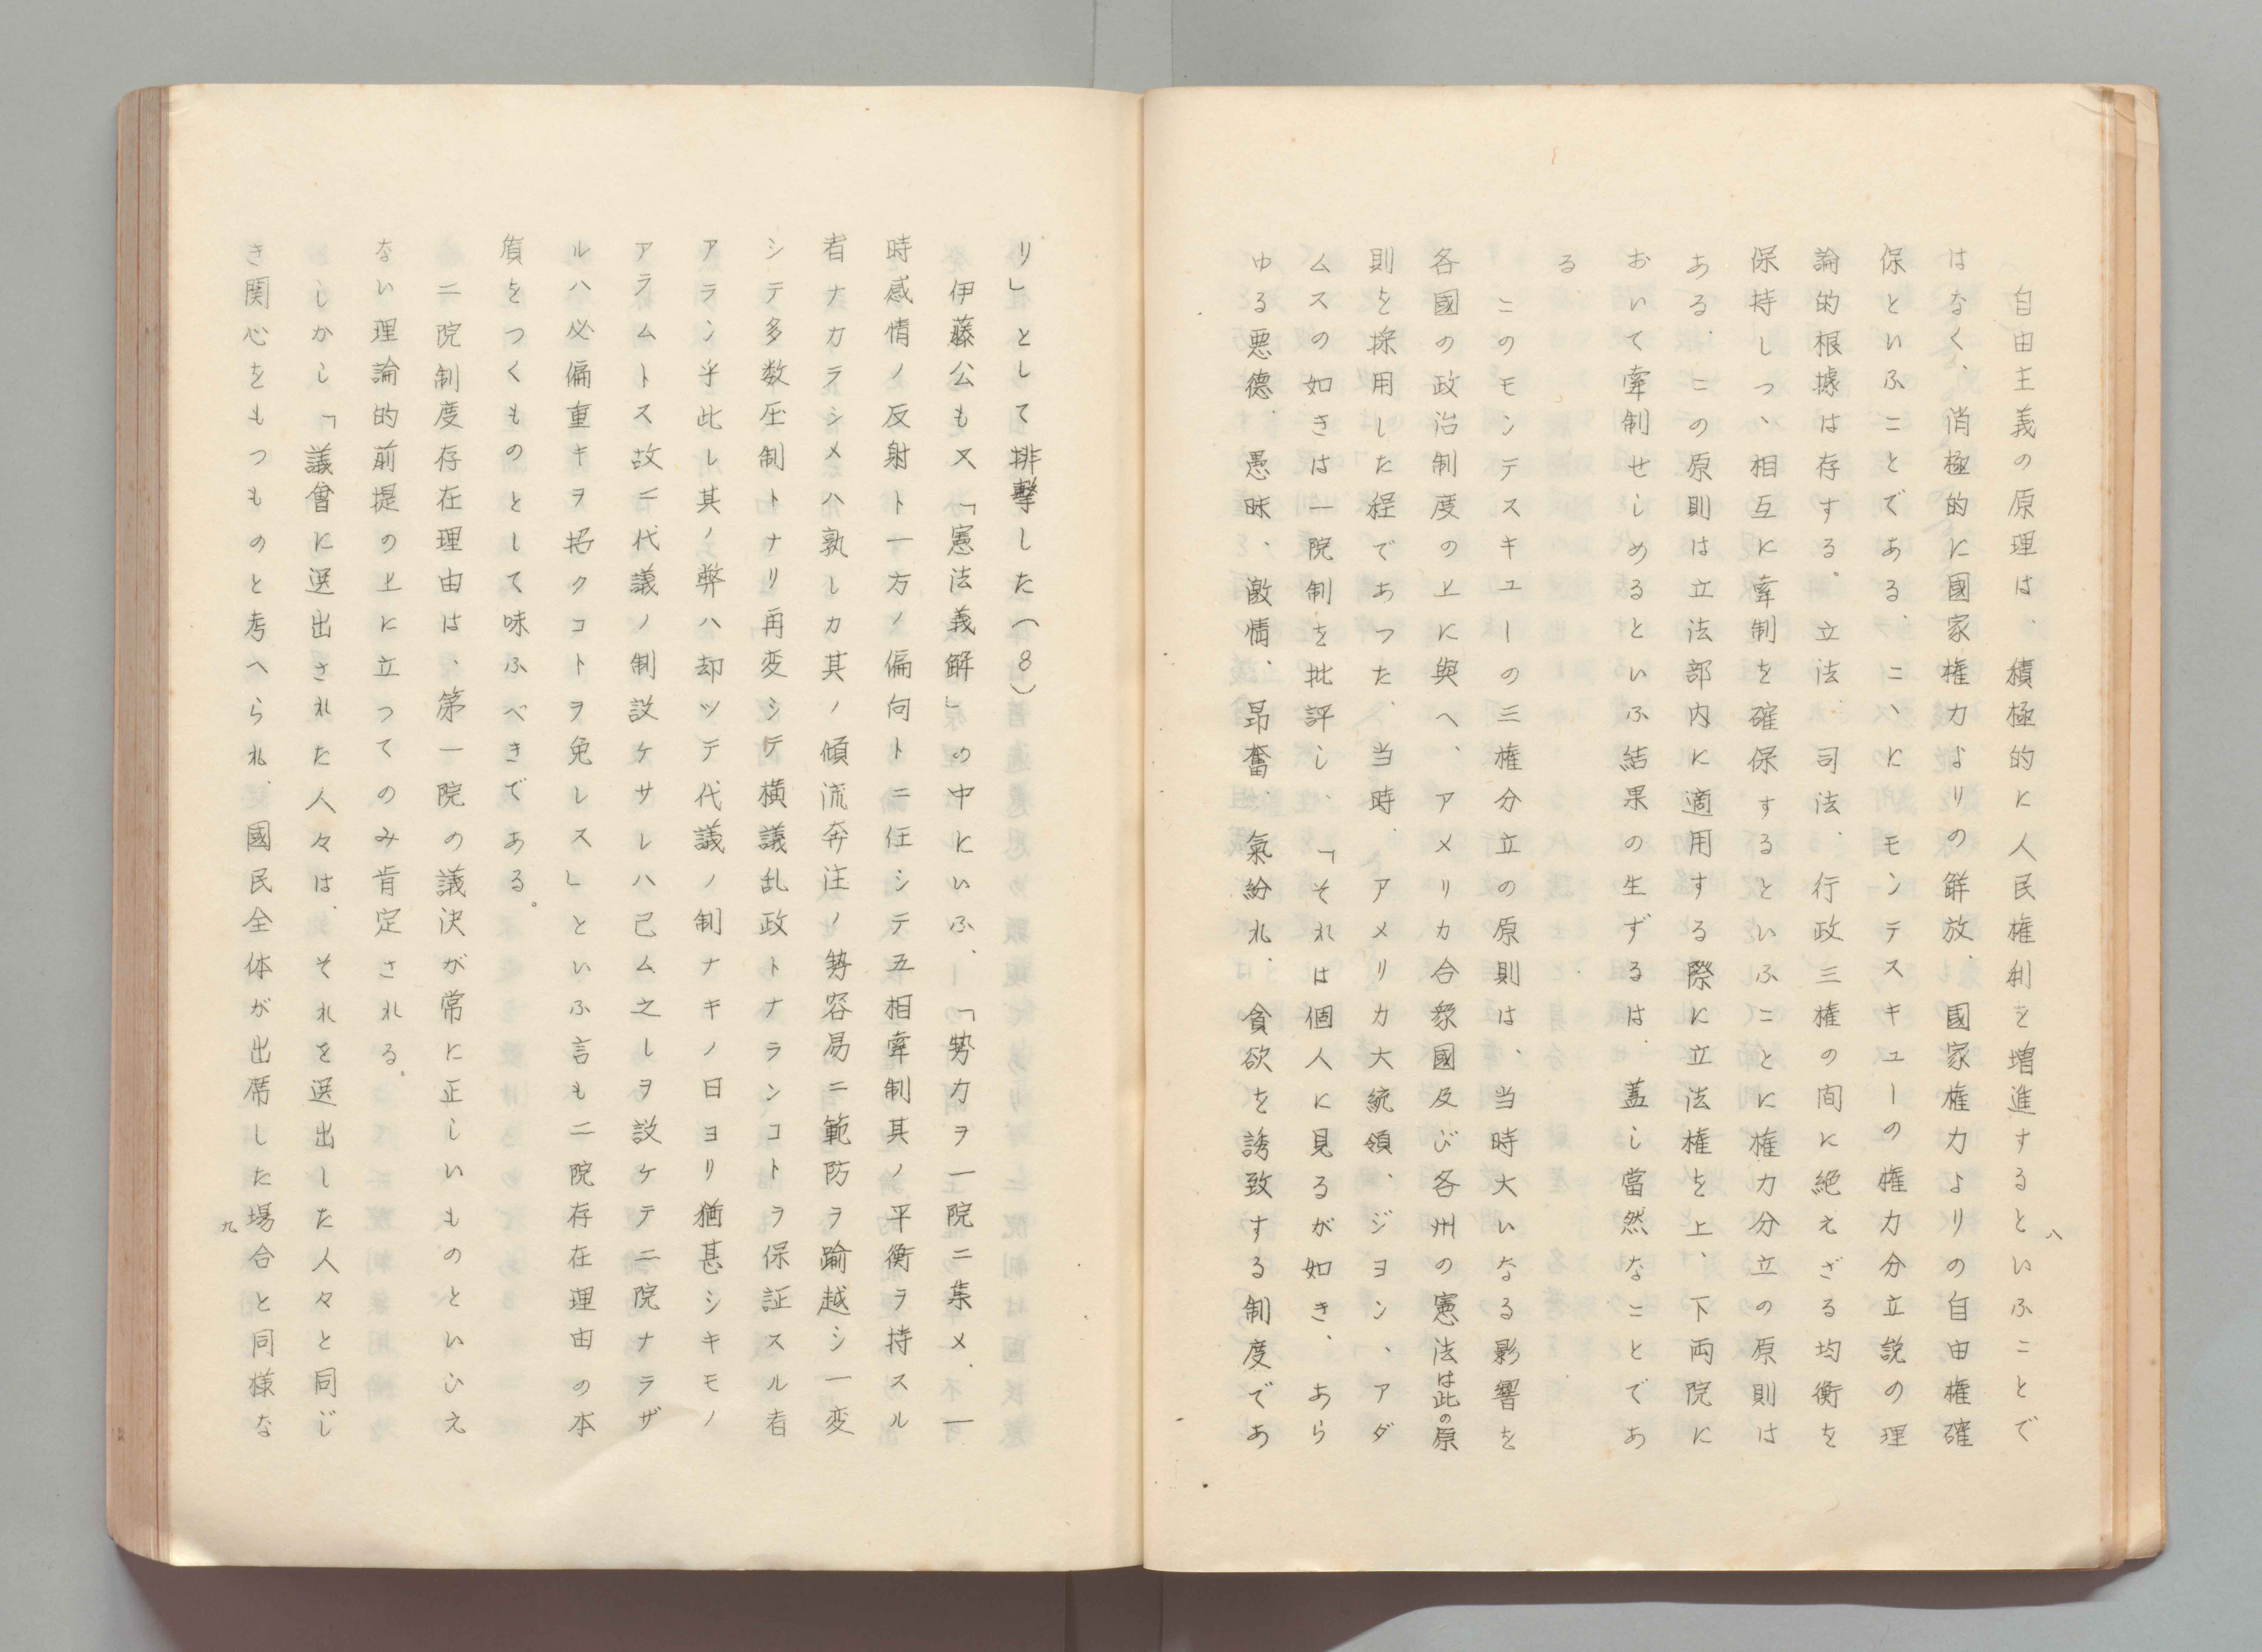 八
自由主義の原理は、積極的に人民権利を増進するといふことで
はなく、消極的に國家権力よりの解放、國家権力よりの自由権確
保といふことである、こゝにモンテスキューの権力分立説の理
論的根據は存する。立法、司法、行政三権の间に絶えざる均衡を
保持しつゝ相互に牽制を確保するといふことに権力分立の原則は
ある、この原則は立法部内に適用する際に立法権を上、下両院に
おいて牽制せしめるといふ結果の生ずるは、蓋し當然なことであ
る、
このモンテスキユーの三権分立の原則は、当時大いなる影響を
各國の政治制度の上に與へ、アメリカ合衆國及び各州の憲法は此の原
則を採用した程であった、当時、アメリカ大統領、ジヨン、アダ
ムスの如きは一院制を批評し、「それは個人に見るが如き、あら
ゆる悪德、愚昧、激情、昂奮、氣紛れ、貪欲を誘致する制度であ
り」として排擊した(8)
伊藤公も又「憲法義解」の中にいふ、「勢力ヲ一院ニ集メ、一
時感情ノ反射ト一方ノ偏向トニ任シテ互相牽制其ノ平衡ヲ持スル
者ナカラシメハ孰レカ其ノ傾流奔注ノ勢容易ニ範防ヲ踰越シ一変
シテ多数圧制トナリ再変シテ横議乱政トナランコトヲ保証スル者
アラン乎此レ其ノ弊ハ却ツテ代議ノ制ナキノ日ヨリ猶甚シキモノ
アラムトス故ニ代議ノ制設ケサレハ已ム之レヲ設ケテ二院ナラザ
ルハ必偏重キヲ招クコトヲ免レス」といふ言も二院存在理由の本
質をつくものとして味ふべきである。
二院制度存在理由は、第一院の議決が常に正しいものといひえ
ない理論的前提の上に立つてのみ肯定される。
しかし「議會に選出された人々は、それを選出した人々と同じ
き関心をもつものと考へられ、國民全体が出席した場合と同様な
九